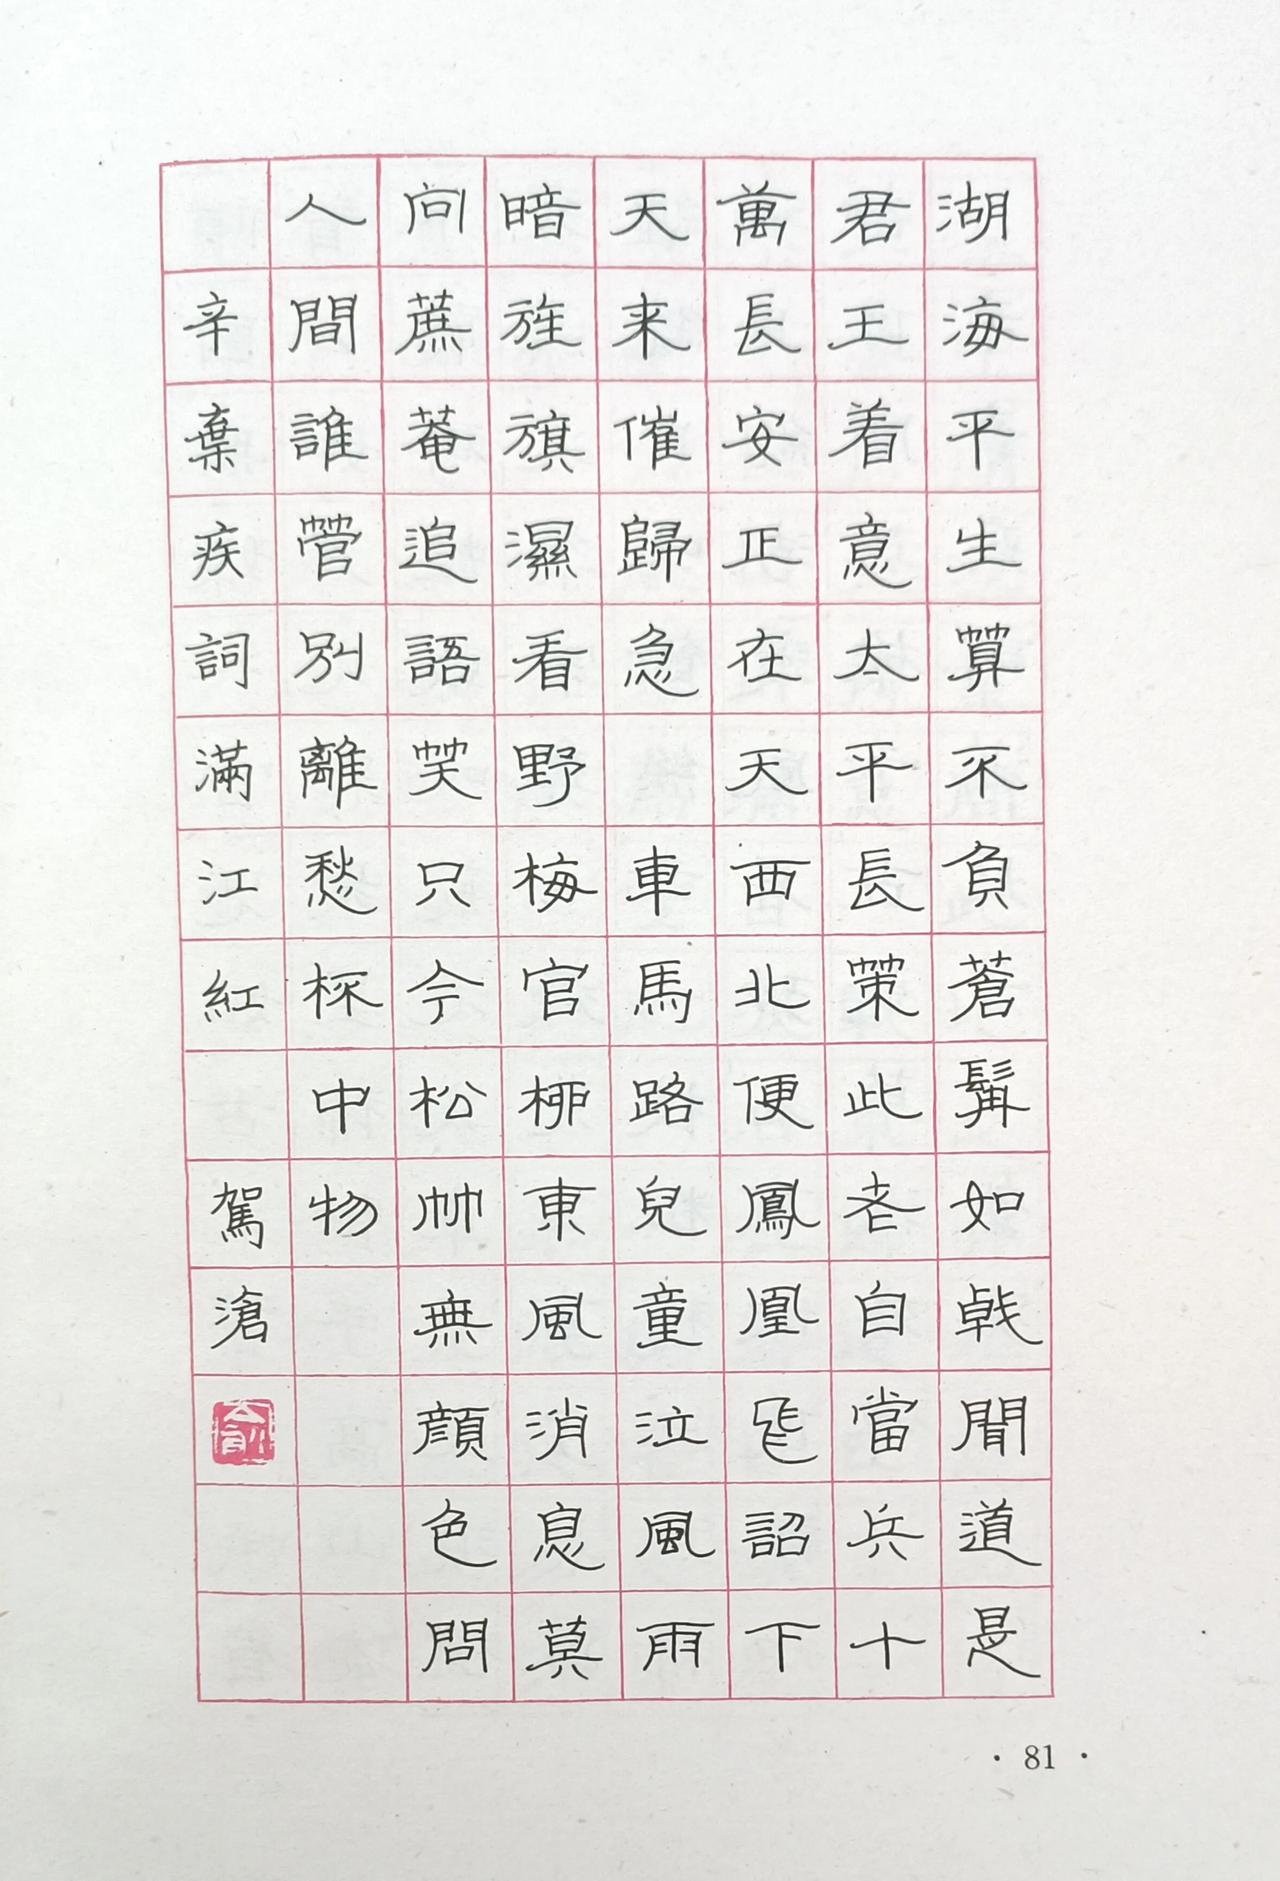 湖海平生算不負蒼髯如戟聞道是
君王着意太平長策此老自當兵十
萬長安正在天西北便鳳凰飛詔下
天来催歸急 車馬路兒童泣風雨
暗旌旗濕看野梅官柳東風消息莫
向蔗菴追語笑只今松竹無顏色問
人間誰管別離愁杯中物
辛棄疾詞滿江紅 駕滄
俞
· 81 ·